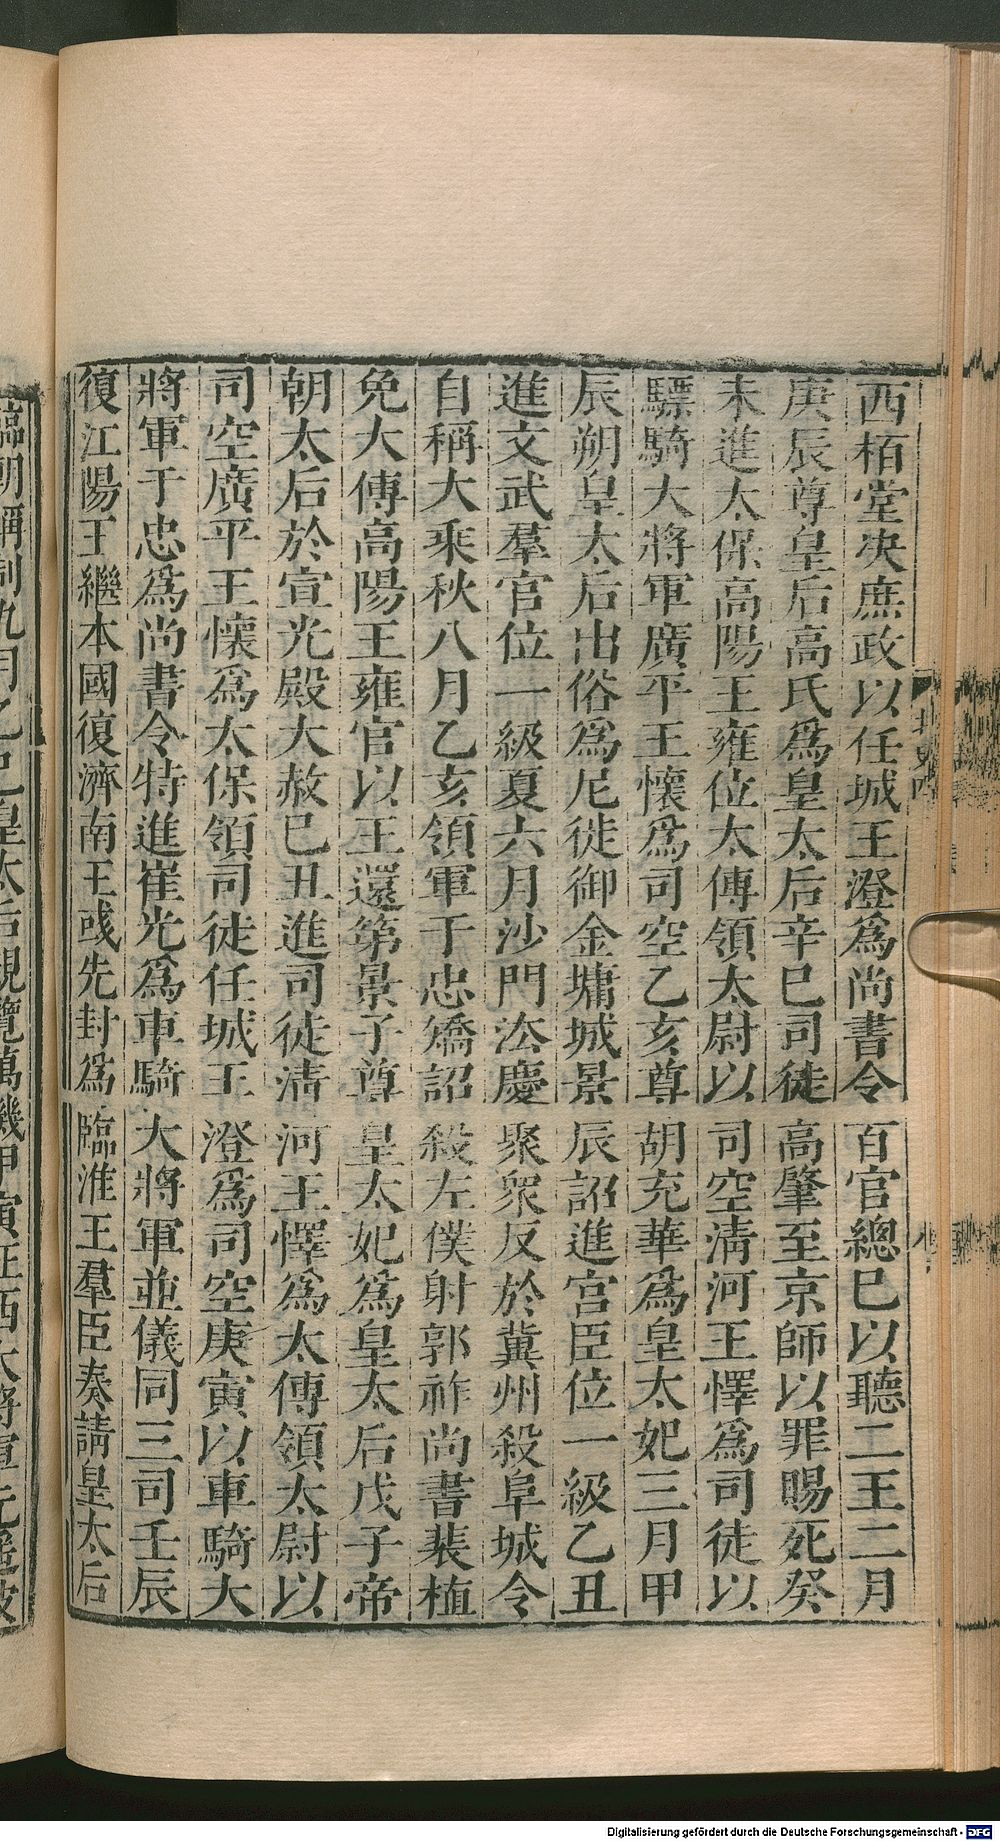 西栢堂决庶政以任城王澄爲尚書令百官總巳以聽二王二月
庚辰尊皇后高氏爲皇太后辛巳司徒高肇至京師以罪賜死癸
未進太保高陽王雍位太傅領太尉以司空清河王懌爲司徒以
驃騎大將軍廣平王懷爲司空乙亥尊胡充華爲皇太妃三月甲
辰朔皇太后出俗爲尼徙御金墉城景辰詔進宫臣位一級乙丑
進文武羣官位一級夏六月沙門法慶聚衆反於冀州殺阜城令
自稱大乘秋八月乙亥領軍于忠矯詔殺左僕射郭祚尚書裴植
免大傅高陽王雍官以王還第景子尊皇太妃爲皇太后戊子帝
朝太后於宣光殿大赦巳丑進司徒清河王懌爲太傅領太尉以
司空廣平王懷爲太保領司徒任城王澄爲司空庚寅以車騎大
將軍于忠爲尚書令特進崔光爲車騎大將軍並儀同三司壬辰
復江陽王繼本國復濟南王彧先封爲臨淮王羣臣奏請皇太后
臨朝稱制九月乙巳皇太后親覽萬機甲寅征西大將軍元遥破
Digitalisierung gefördert durch die Deutsche Forschungsgemeinschaft - DFG